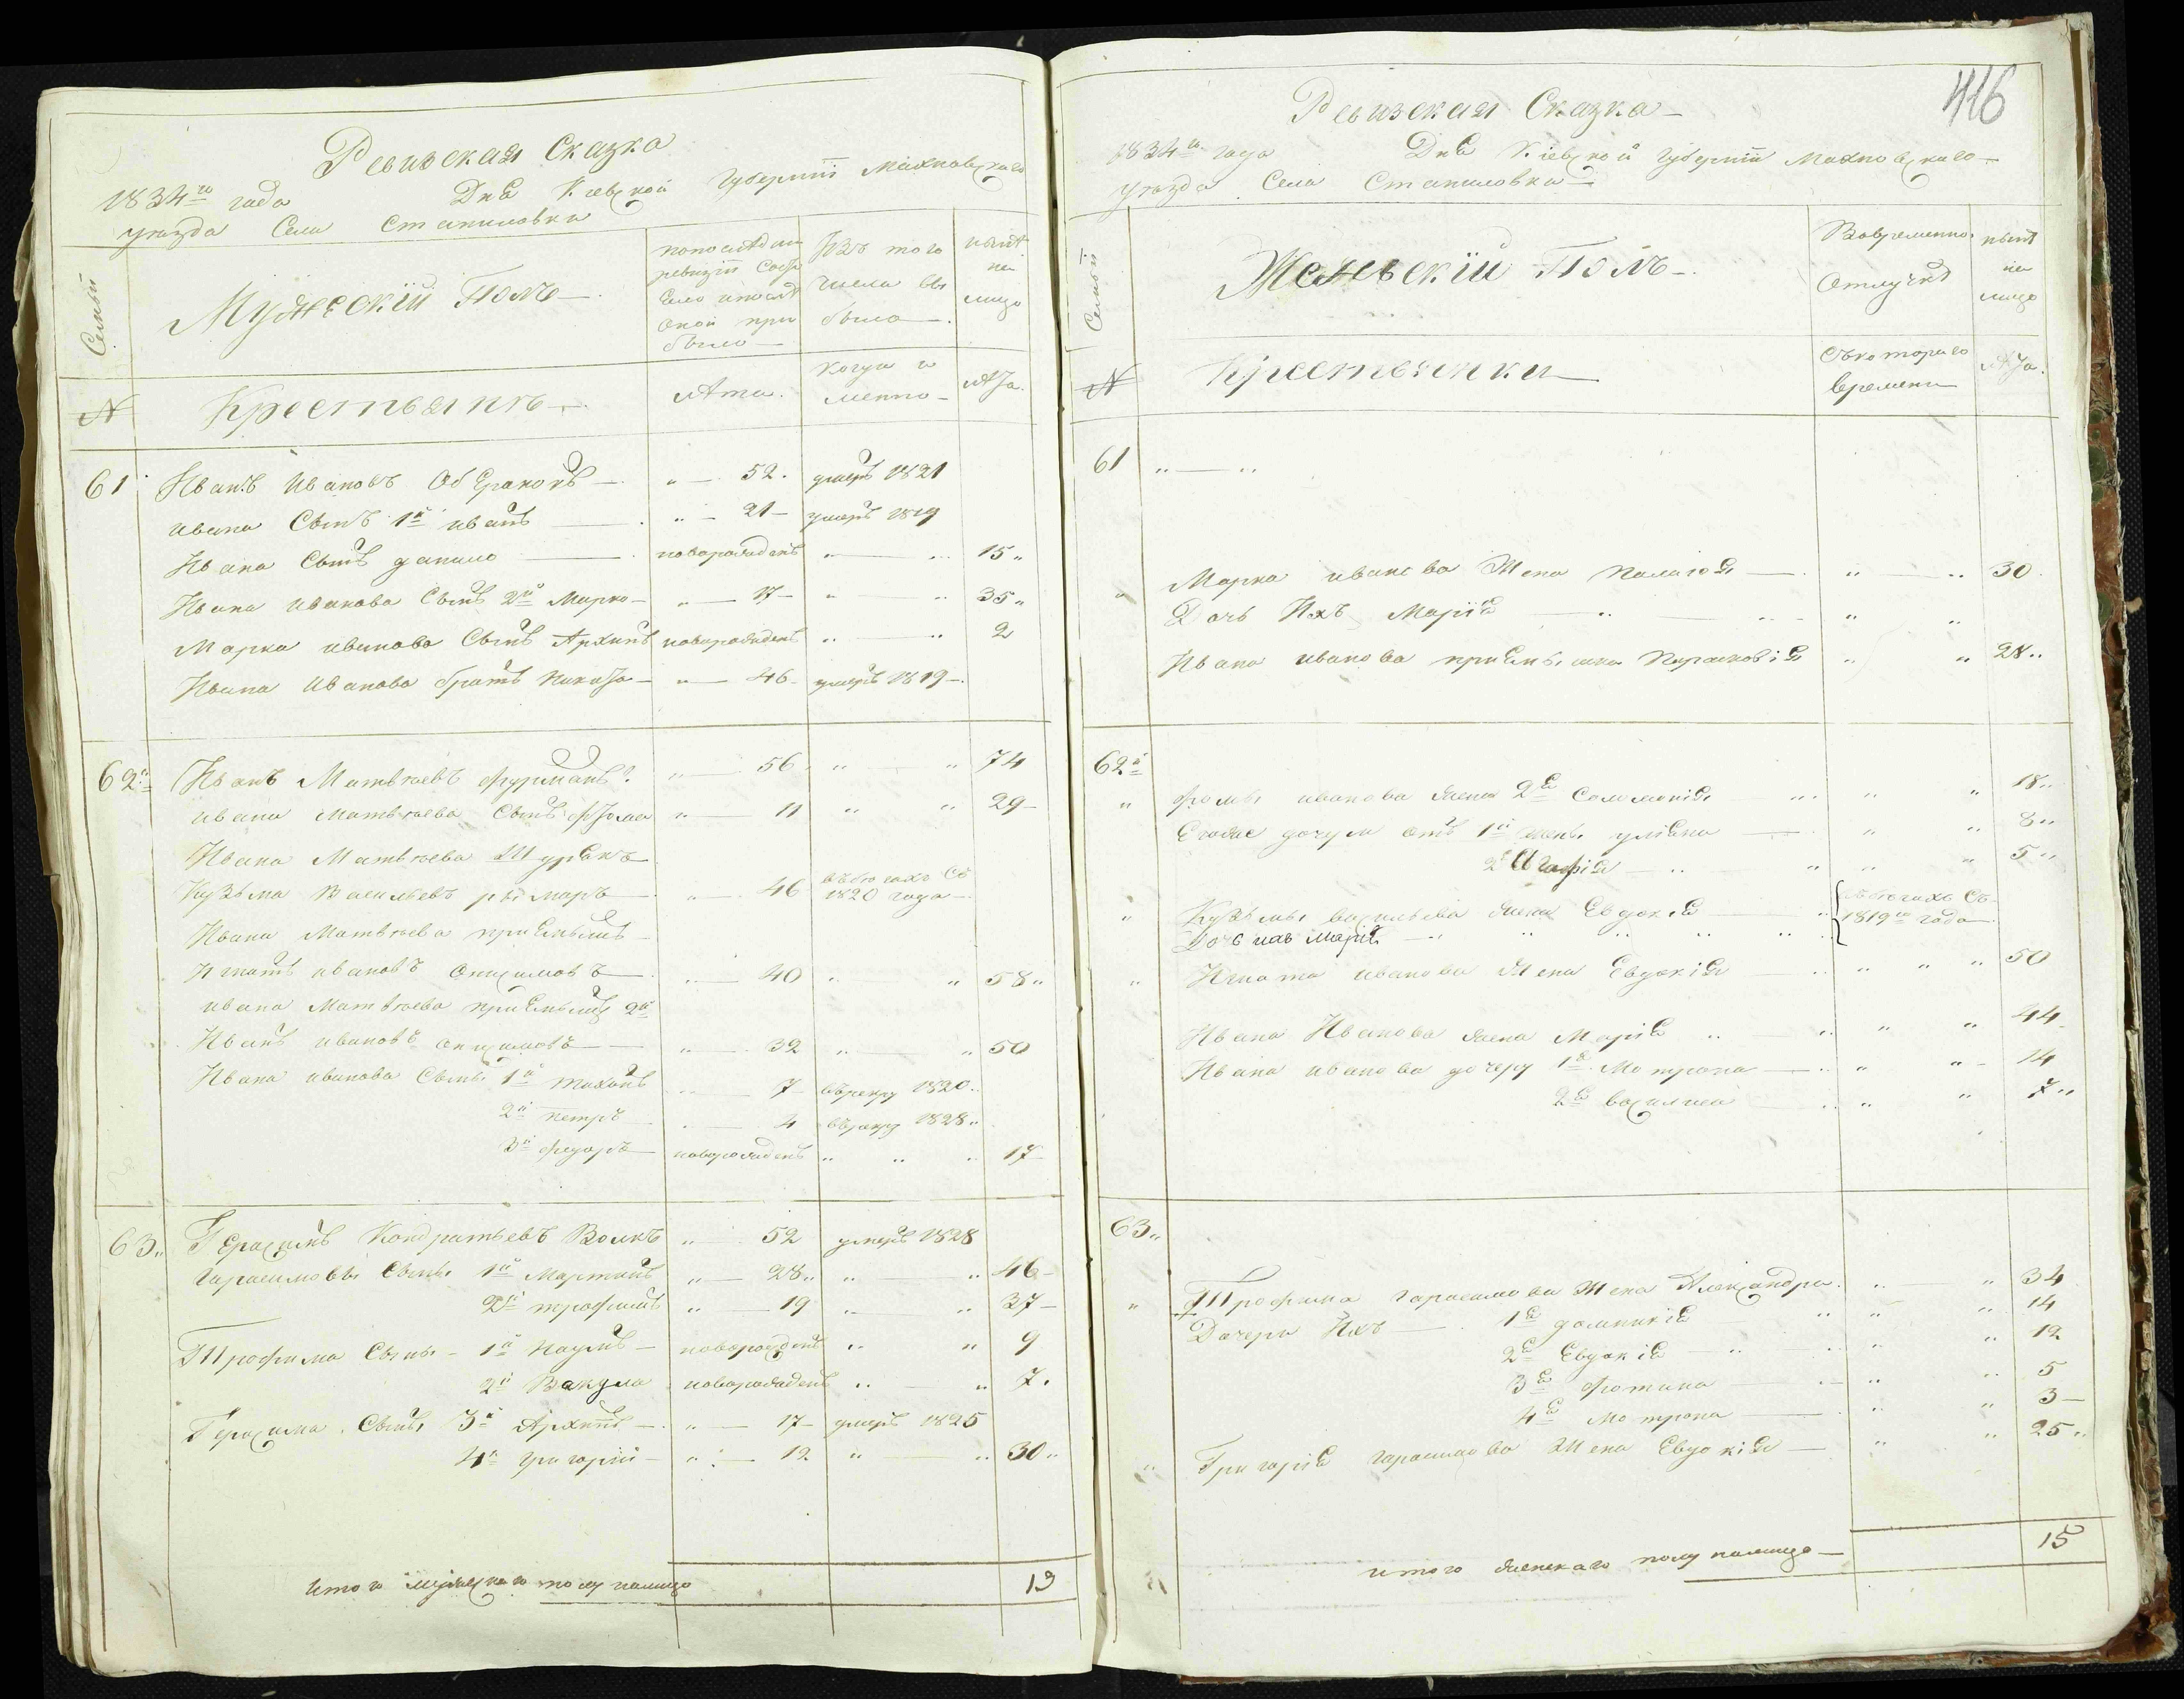 Ревизская Сказка
1834го года Дня Киевской Губернии Махновскаго
уезда Села Станиловки
Семьи
Мужеский Полъ
По последней ревизии состояло и после оной прибыло
Изъ того числа выбыло
Ныне на лицо
№
Крестьяне
Лета
Когда именно
Лета
61 Иванъ Ивановъ 52 умеръ 1821
Ивана Сынъ 1й Иванъ 21 умеръ 1819
Ивана Сынъ Данило новорожденъ 15
Ивана Иванова Сынъ 2й Марко 17 35
Марка Иванова Сынъ Архипъ новорожденъ 2
Ивана Иванова братъ Никита 46 умеръ 1819
62й Иванъ Матвеевъ Фурманъ 56 74
Ивана Матвеева Сынъ Фома 11 29
Ивана Матвеева Шуринъ
Кузьма Васильевъ Рымаръ 46 въ бегахъ съ 1820 года
Ивана Матвеева приемышъ
Игнатъ Ивановъ Онисимовъ 40 58
Ивана Матвеева приемышъ 2й
Иванъ Ивановъ Онисимовъ 32 50
Ивана Иванова Сыны 1й Тихонъ 7 въ рекру 1820
2й Петръ 4 въ рекру 1828
3й Федоръ новорожденъ 17
63 Герасимъ Кондратьевъ Волкъ 52 умеръ 1828
Гарасимовы Сыны 1й Мартинъ 28 46
2й Трофимъ 19 37
Трофима Сыны 1й Наумъ новорожденъ 9
2й Вакула новорожденъ 7
Герасима Сынъ 3й Архипъ 17 умеръ 1825
4й Григорий 12 30
Итого мужескаго полу налицо 19
416
Ревизская Сказка
1834го года Дня Киевской Губернии Махновскаго
уезда Села Станиловки
Семьи
Женьский Полъ
Во временной отлучке
Ныне на лицо
№
Крестьянки
Съ котораго времени
Лета
61
Марка Иванова Жена Палагея 30
Дочь Ихъ Мария
Ивана Иванова приемышка Парасковия 28
62й
Фомы Иванова жена 2я Соломония 18
Егоже дочери отъ 1й жены Улияна 8
2я Агафия 5
Кузьмы Васильева жена Евдокия въ бегахъ съ 1819го года
Дочь ихъ Мария
Игната Иванова Жена Евдокия 50
Ивана Иванова жена Мария 44
Ивана Иванова дочери 1я Мотрона 14
2я Василиса 7
63
Трофима Гарасимова Жена Александра 34
Дочери Ихъ 1я Домникия 14
2я Евдокия 12
3я Фотина 5
4я Мотрона 3
Григория Гарасимова Жена Евдокия 25
Итого женскаго полу налицо 15